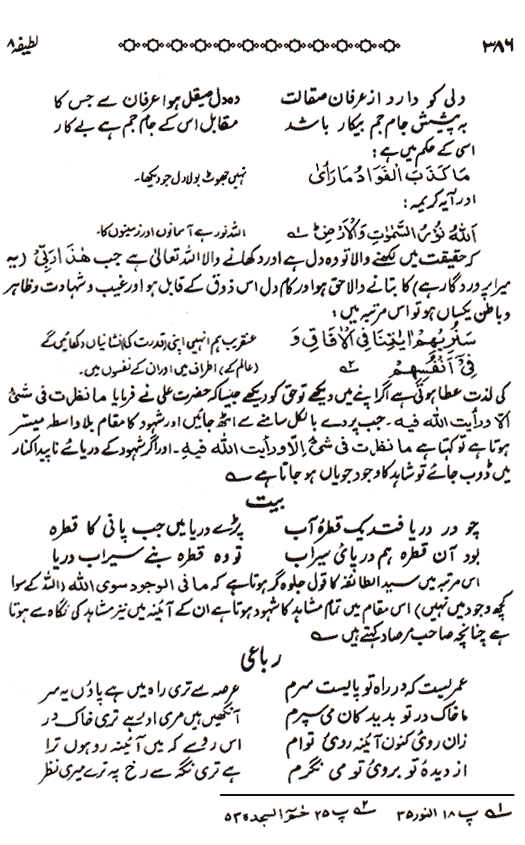 ۳۸۶ لطیفہ ۸
دلی کو دارد از عرفان صقالت وہ دل صیقل ہوا عرفان سے جس کا
بہ پیشش جام جم بیکار باشد مقابل اس کے جام جم ہے بے کار
اسی کے حکم میں ہے:
مَا کَذَبَ الْفُوَادُ مَا رَاٰی نہیں جھوٹ بولا دل جو دیکھا۔
اور آیہ کریمہ:
اَللّٰهُ نُوْرُ السَّمٰوٰتِ وَالْاَرْضِ ۱ اللہ نور ہے آسمانوں اور زمینوں کا۔
کہ حقیقت میں دیکھنے والا تو وہ دل ہے اور دکھانے والا اللہ تعالیٰ ہے جب هٰذَا رَبِّیْ (یہ
میرا پروردگار ہے) کا بتانے والا حق ہوا اور کام دل اس ذوق کے قابل ہو اور غیب و شہادت و ظاہر
و باطن یکساں ہو تو اس مرتبہ میں:
سَنُرِیْهِمْ اٰیٰتِنَا فِی الْاٰفَاقِ وَ عنقریب ہم انہیں اپنی (قدرت کی) نشانیاں دکھائیں گے
فِیْ اَنْفُسِهِمْ ۲ (عالم کے) اطراف میں اور ان کے نفسوں میں۔
کی لذت عطا ہوتی ہے اگر اپنے میں دیکھے تو حق کو دیکھے جیسا کہ حضرت علی نے فرمایا ما نظرت فی شئ
الا ورأیت الله فیه۔ جب پردے بالکل سامنے سے اٹھ جائیں اور شہود کا مقام بلا واسطہ میسر
ہوتا ہے تو کہتا ہے ما نظرت فی شئ الا ورأیت الله فیه۔ اور اگر شہود کے دریائے ناپیدا کنار
میں ڈوب جائے تو شاہد کا وجود جویاں ہو جاتا ہے
بیت
چو در دریا فتد یک قطرہ آب پڑے دریا میں جب پانی کا قطرہ
بود آن قطرہ ہم دریای سیراب تو وہ قطرہ بنے سیراب دریا
اس مرتبہ میں سید الطائفہ کا قول جلوہ گر ہوتا ہے کہ ما فی الوجود سوی الله (اللہ کے سوا
کچھ وجود میں نہیں) اس مقام میں تمام مشاہد کا شہود ہوتا ہے ان کے آئینہ میں نیز مشاہد کی نگاہ سے ہوتا
ہے چنانچہ صاحب مرصاد کہتے ہیں
رباعی
عمریست کہ در راہ تو پایست سرم عرصہ سے تری راہ میں ہے پاؤں یہ سر
ما خاک در تو بدیدگان می سپرم آنکھیں ہیں مری اور ہے تری خاک در
زان روی کنون آئینہ روی توام اس روسے کہ میں آئینہ رو ہوں ترا
از دیدۂ تو بروی تو می نگرم ہے تری نگہ سے رخ پہ ترے میری نظر
۱ پ ۱۸ النور ۳۵ ۲ پ ۲۵ حٰمٓ السجدۃ ۵۳